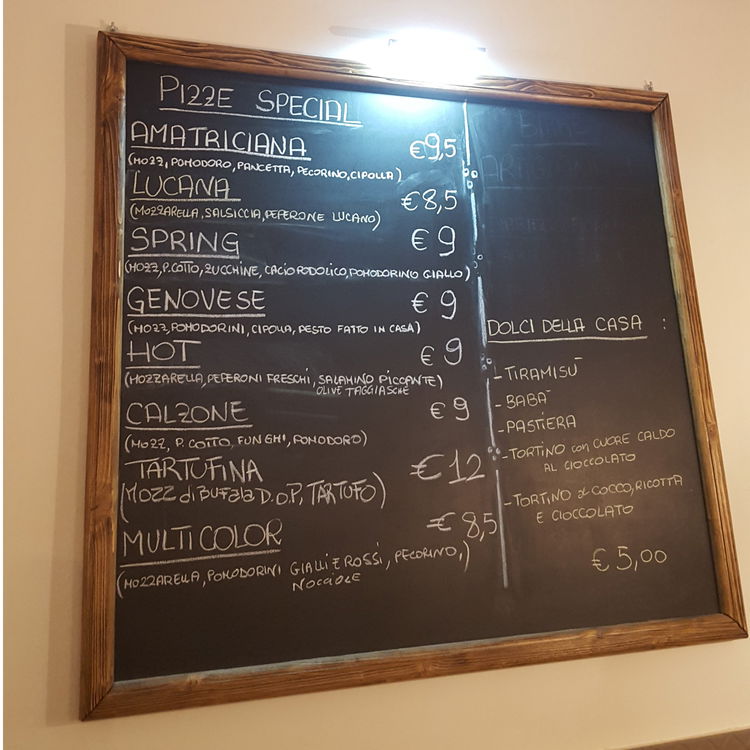 PIZZE SPECIAL
AMATRICIANA €9,5
(MOZZ, POMODORO, PANCETTA, PECORINO, CIPOLLA)
LUCANA €8,5
(MOZZARELLA, SALSICCIA, PEPERONE LUCANO)
SPRING €9
(MOZZ, P.COTTO, ZUCCHINE, CACIOPODOLICO, POMODORINO GIALLO)
GENOVESE €9
(MOZZ, POMODORINI, CIPOLLA, PESTO FATTO IN CASA)
HOT €9
(MOZZARELLA, PEPERONI FRESCHI, SALAMINO PICCANTE)
OLIVE TAGGIASCHE
CALZONE €9
(MOZZ, P. COTTO, FUNGHI, POMODORO)
TARTUFINA €12
(MOZZ di BUFALA D.O.P, TARTUFO)
MULTICOLOR €8,5
(MOZZARELLA, POMODORINI GIALLI E ROSSI, PECORINO,)
NOCCIOLE
DOLCI DELLA CASA :
- TIRAMISÙ
- BABÀ
- PASTIERA
- TORTINO con CUORE CALDO
AL CIOCCOLATO
- TORTINO al COCCO, RICOTTA
E CIOCCOLATO
€5,00